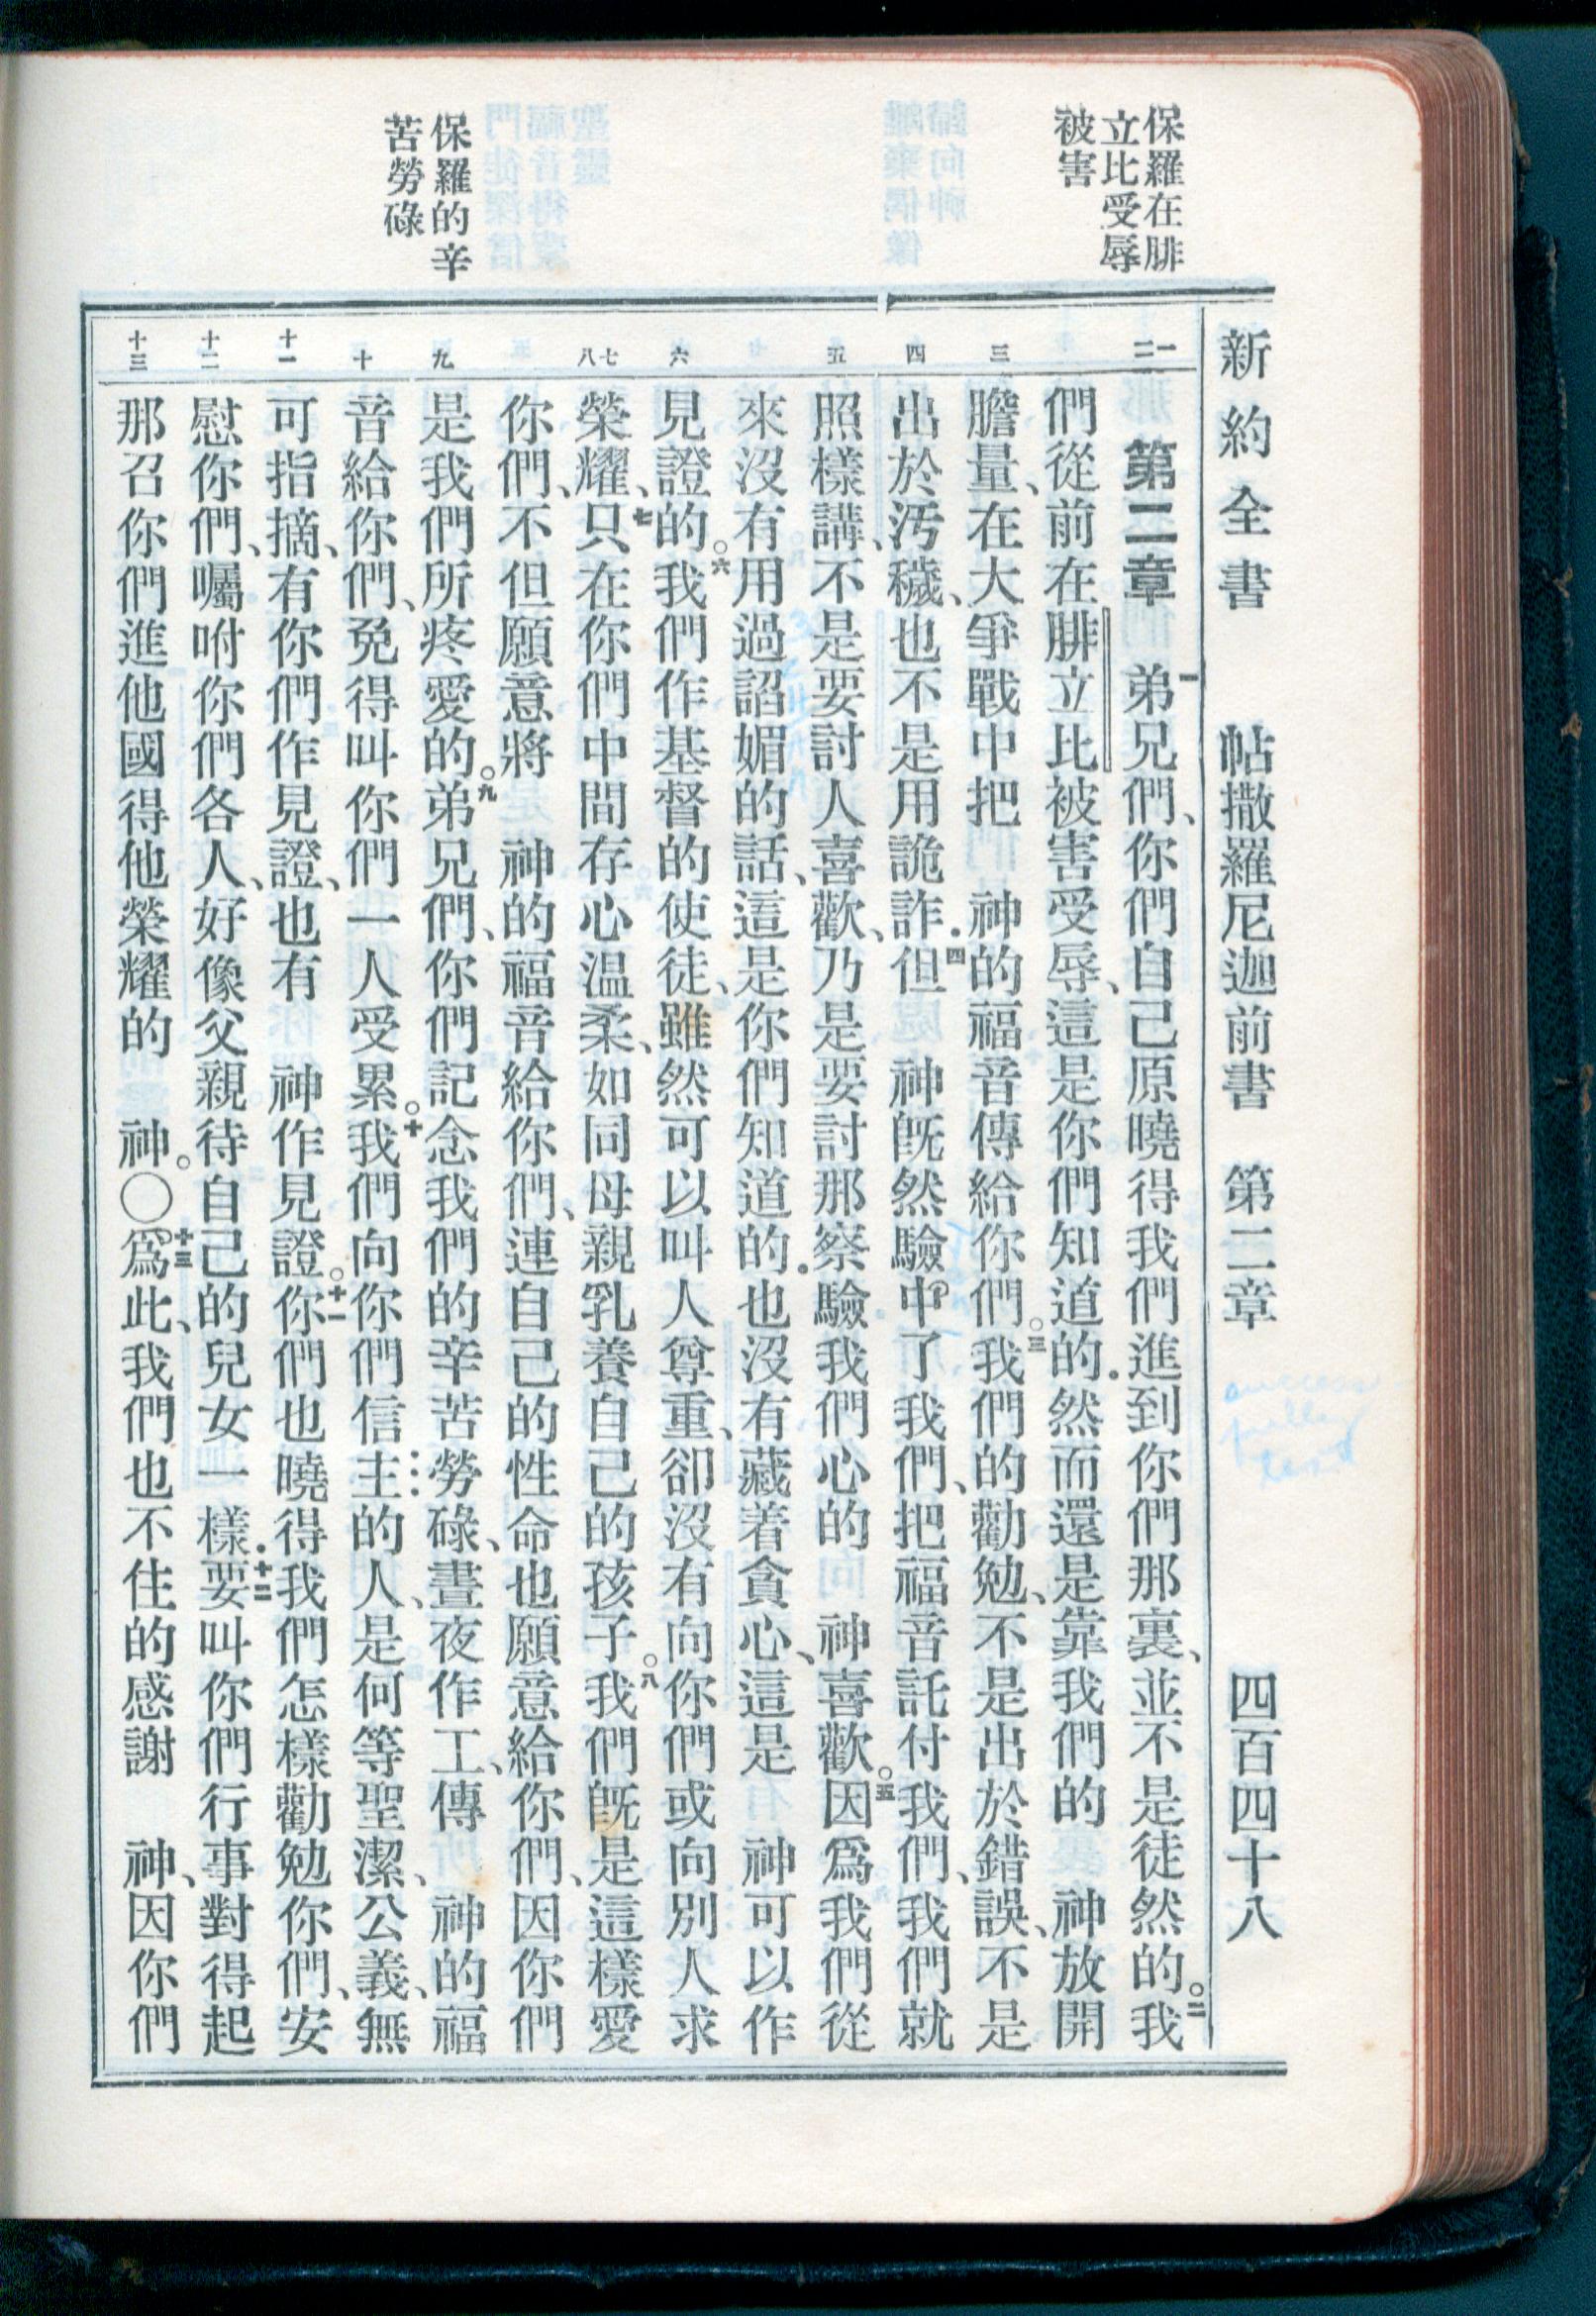 新約全書 帖撒羅尼迦前書 第二章 四百四十八
保羅在腓
立比受辱
被害
保羅的辛
苦勞碌
一二 三 四 五 六 七八 九 十 十一 十二 十三
第二章 一弟兄們、你們自己原曉得我們進到你們那裏、並不是徒然的。二我
們從前在腓立比被害受辱、這是你們知道的．然而還是靠我們的 神放開
膽量、在大爭戰中把 神的福音傳給你們。三我們的勸勉、不是出於錯誤、不是
出於汚穢、也不是用詭詐．四但 神旣然驗中了我們、把福音託付我們、我們就
照樣講、不是要討人喜歡、乃是要討那察驗我們心的 神喜歡。五因爲我們從
來沒有用過諂媚的話、這是你們知道的．也沒有藏着貪心、這是 神可以作
見證的。六我們作基督的使徒、雖然可以叫人尊重、卻沒有向你們或向別人求
榮耀、七只在你們中間存心温柔、如同母親乳養自己的孩子。八我們旣是這樣愛
你們、不但願意將 神的福音給你們、連自己的性命也願意給你們、因你們
是我們所疼愛的。九弟兄們、你們記念我們的辛苦勞碌、晝夜作工、傳 神的福
音給你們、免得叫你們一人受累。十我們向你們信主的人、是何等聖潔、公義、無
可指摘、有你們作見證、也有 神作見證。十一你們也曉得我們怎樣勸勉你們、安
慰你們、囑咐你們各人、好像父親待自己的兒女一樣．十二要叫你們行事對得起
那召你們進他國得他榮耀的 神。〇十三爲此、我們也不住的感謝 神、因你們
success-
fully